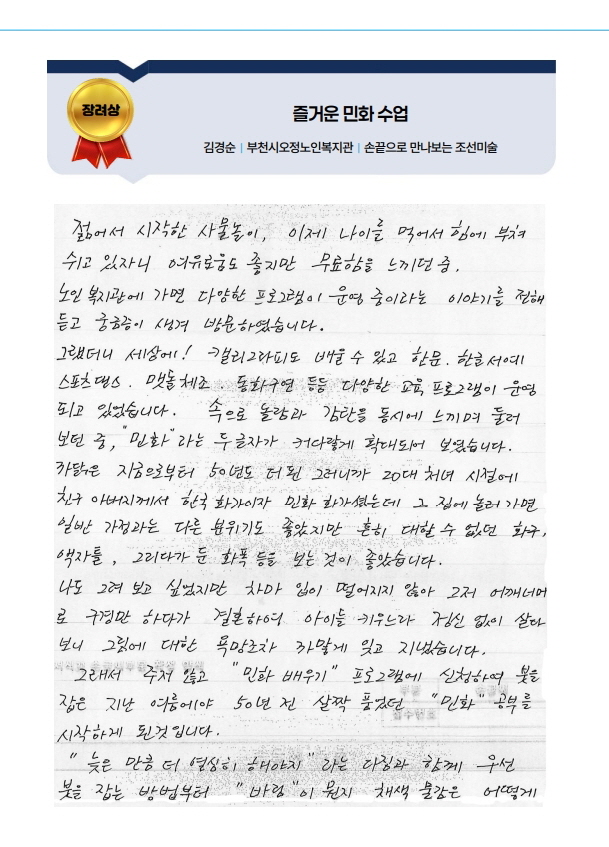 장려상
즐거운 민화 수업
김경순 | 부천시오정노인복지관 | 손끝으로 만나보는 조선미술
젊어서 시작한 사물놀이, 이제 나이를 먹어서 힘에 부쳐
쉬고 있자니 여유로움도 좋지만 무료함을 느끼던 중.
노인복지관에 가면 다양한 프로그램이 운영 중이라는 이야기를 전해
듣고 궁금증이 생겨 방문하였습니다.
그랬더니 세상에! 캘리그라피도 배울 수 있고 한문. 한글서예
스포츠댄스. 맷돌체조. 동화구연 등등 다양한 교육 프로그램이 운영
되고 있었습니다. 속으로 놀람과 감탄을 동시에 느끼며 둘러
보던 중, "민화"라는 두글자가 커다랗게 확대되어 보였습니다.
까닭은 지금으로부터 50년도 더 된 그러니까 20대 처녀 시절에
친구 아버지께서 한국 화가이자 민화 화가셨는데 그 집에 놀러 가면
일반 가정과는 다른 분위기도 좋았지만 흔히 대할 수 없던 화구,
액자들, 그리다가 둔 화폭 등을 보는 것이 좋았습니다.
나도 그려 보고 싶었지만 차마 입이 떨어지지 않아 그저 어깨너머
로 구경만 하다가 결혼하여 아이들 키우느라 정신 없이 살다
보니 그림에 대한 욕망조차 까맣게 잊고 지냈습니다.
그래서 주저 않고 "민화 배우기" 프로그램에 신청하여 붓을
잡은 지난 여름에야 50년 전 살짝 품었던 "민화" 공부를
시작하게 된것 입니다.
"늦은 만큼 더 열심히 해야지"라는 다짐과 함께 우선
붓을 잡는 방법부터 "바림"이 뭔지 채색 물감은 어떻게